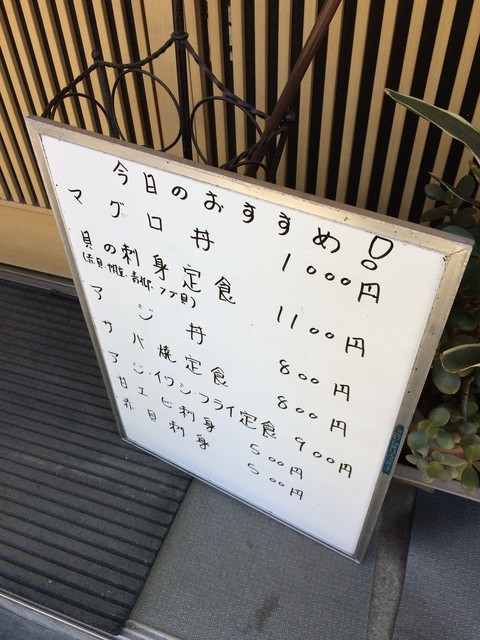 今日のおすすめ!
マグロ丼 1000円
貝の刺身定食 1100円
アジ丼 800円
サバ焼定食 800円
アジ・イワシ・フライ定食 900円
甘エビ刺身 500円
赤貝刺身 500円